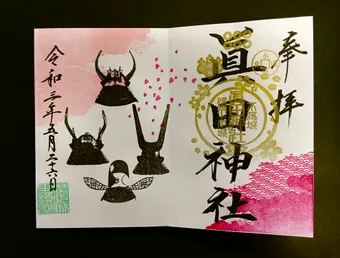 奉拝
眞田神社
令和三年五月二十六日